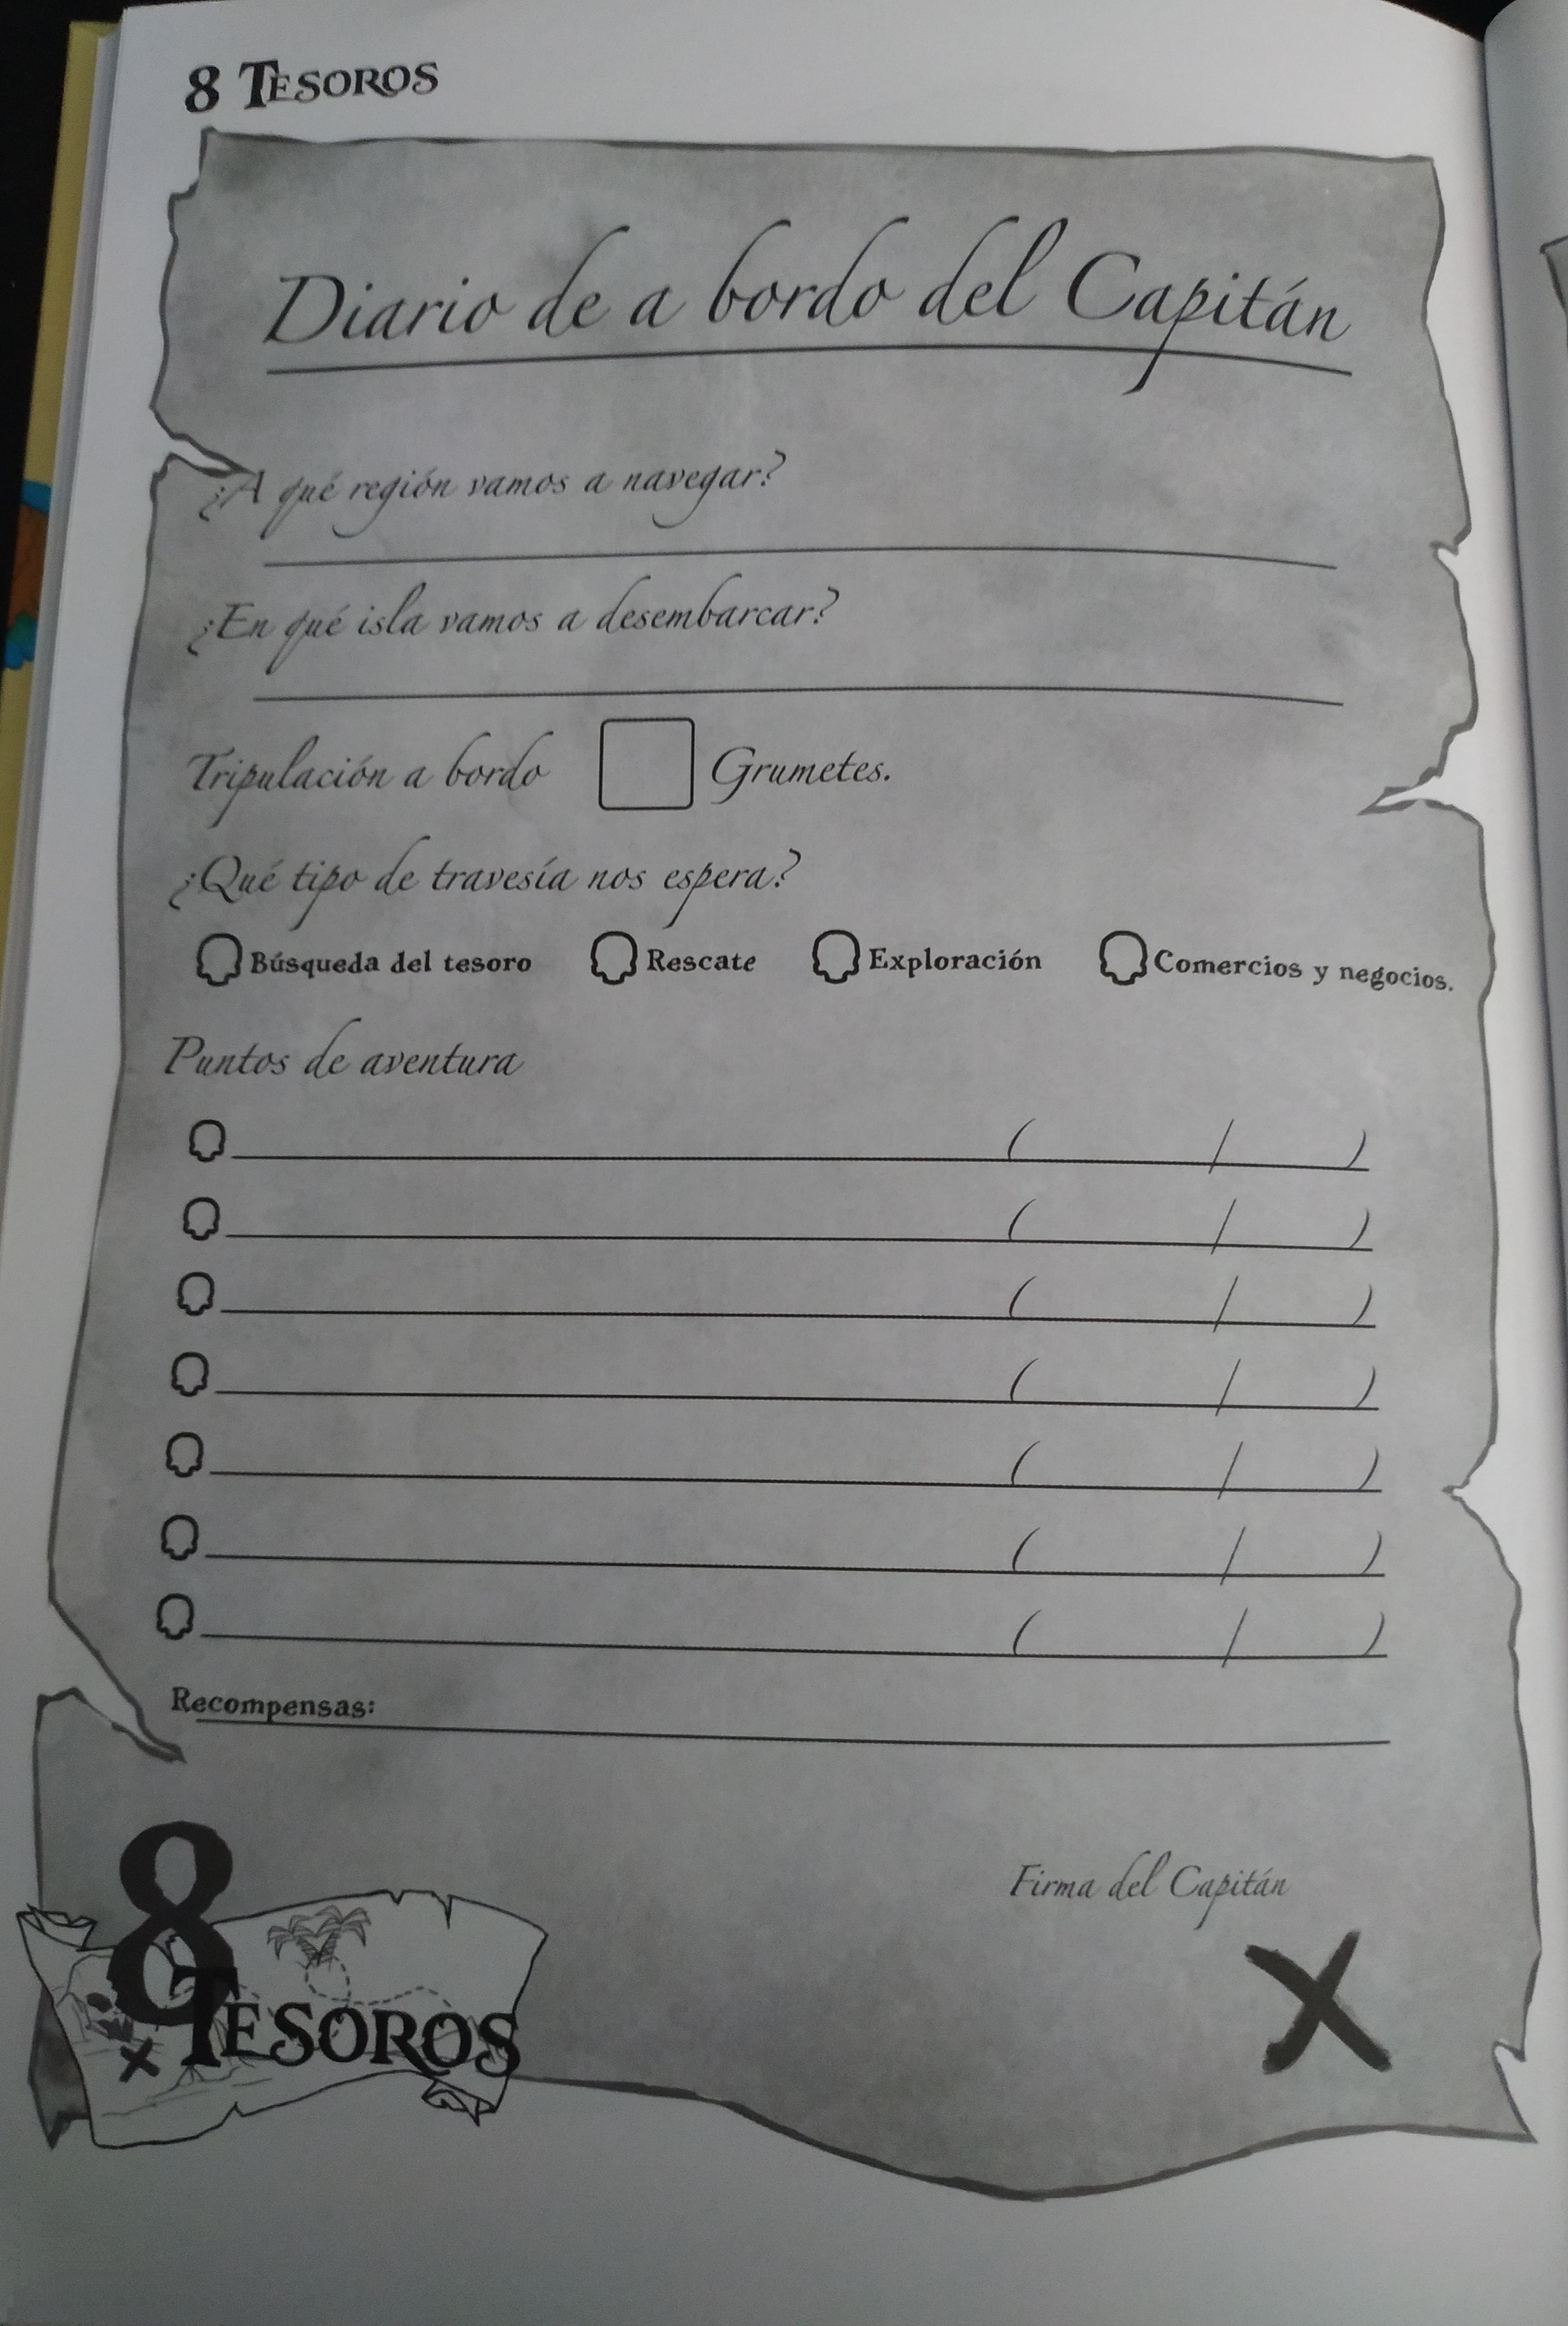 8 TESOROS
Diario de a bordo del Capitán
¿A qué región vamos a navegar?
¿En qué isla vamos a desembarcar?
Tripulación a bordo Grumetes.
¿Qué tipo de travesía nos espera?
Búsqueda del tesoro Rescate Exploración Comercios y negocios.
Puntos de aventura
( / )
( / )
( / )
( / )
( / )
( / )
( / )
Recompensas:
Firma del Capitán
8
TESOROS